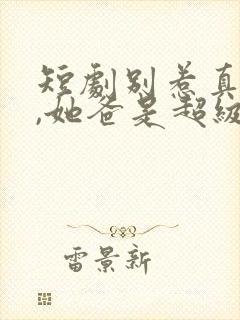 短劇別惹真
,她爸是超級
雷景新